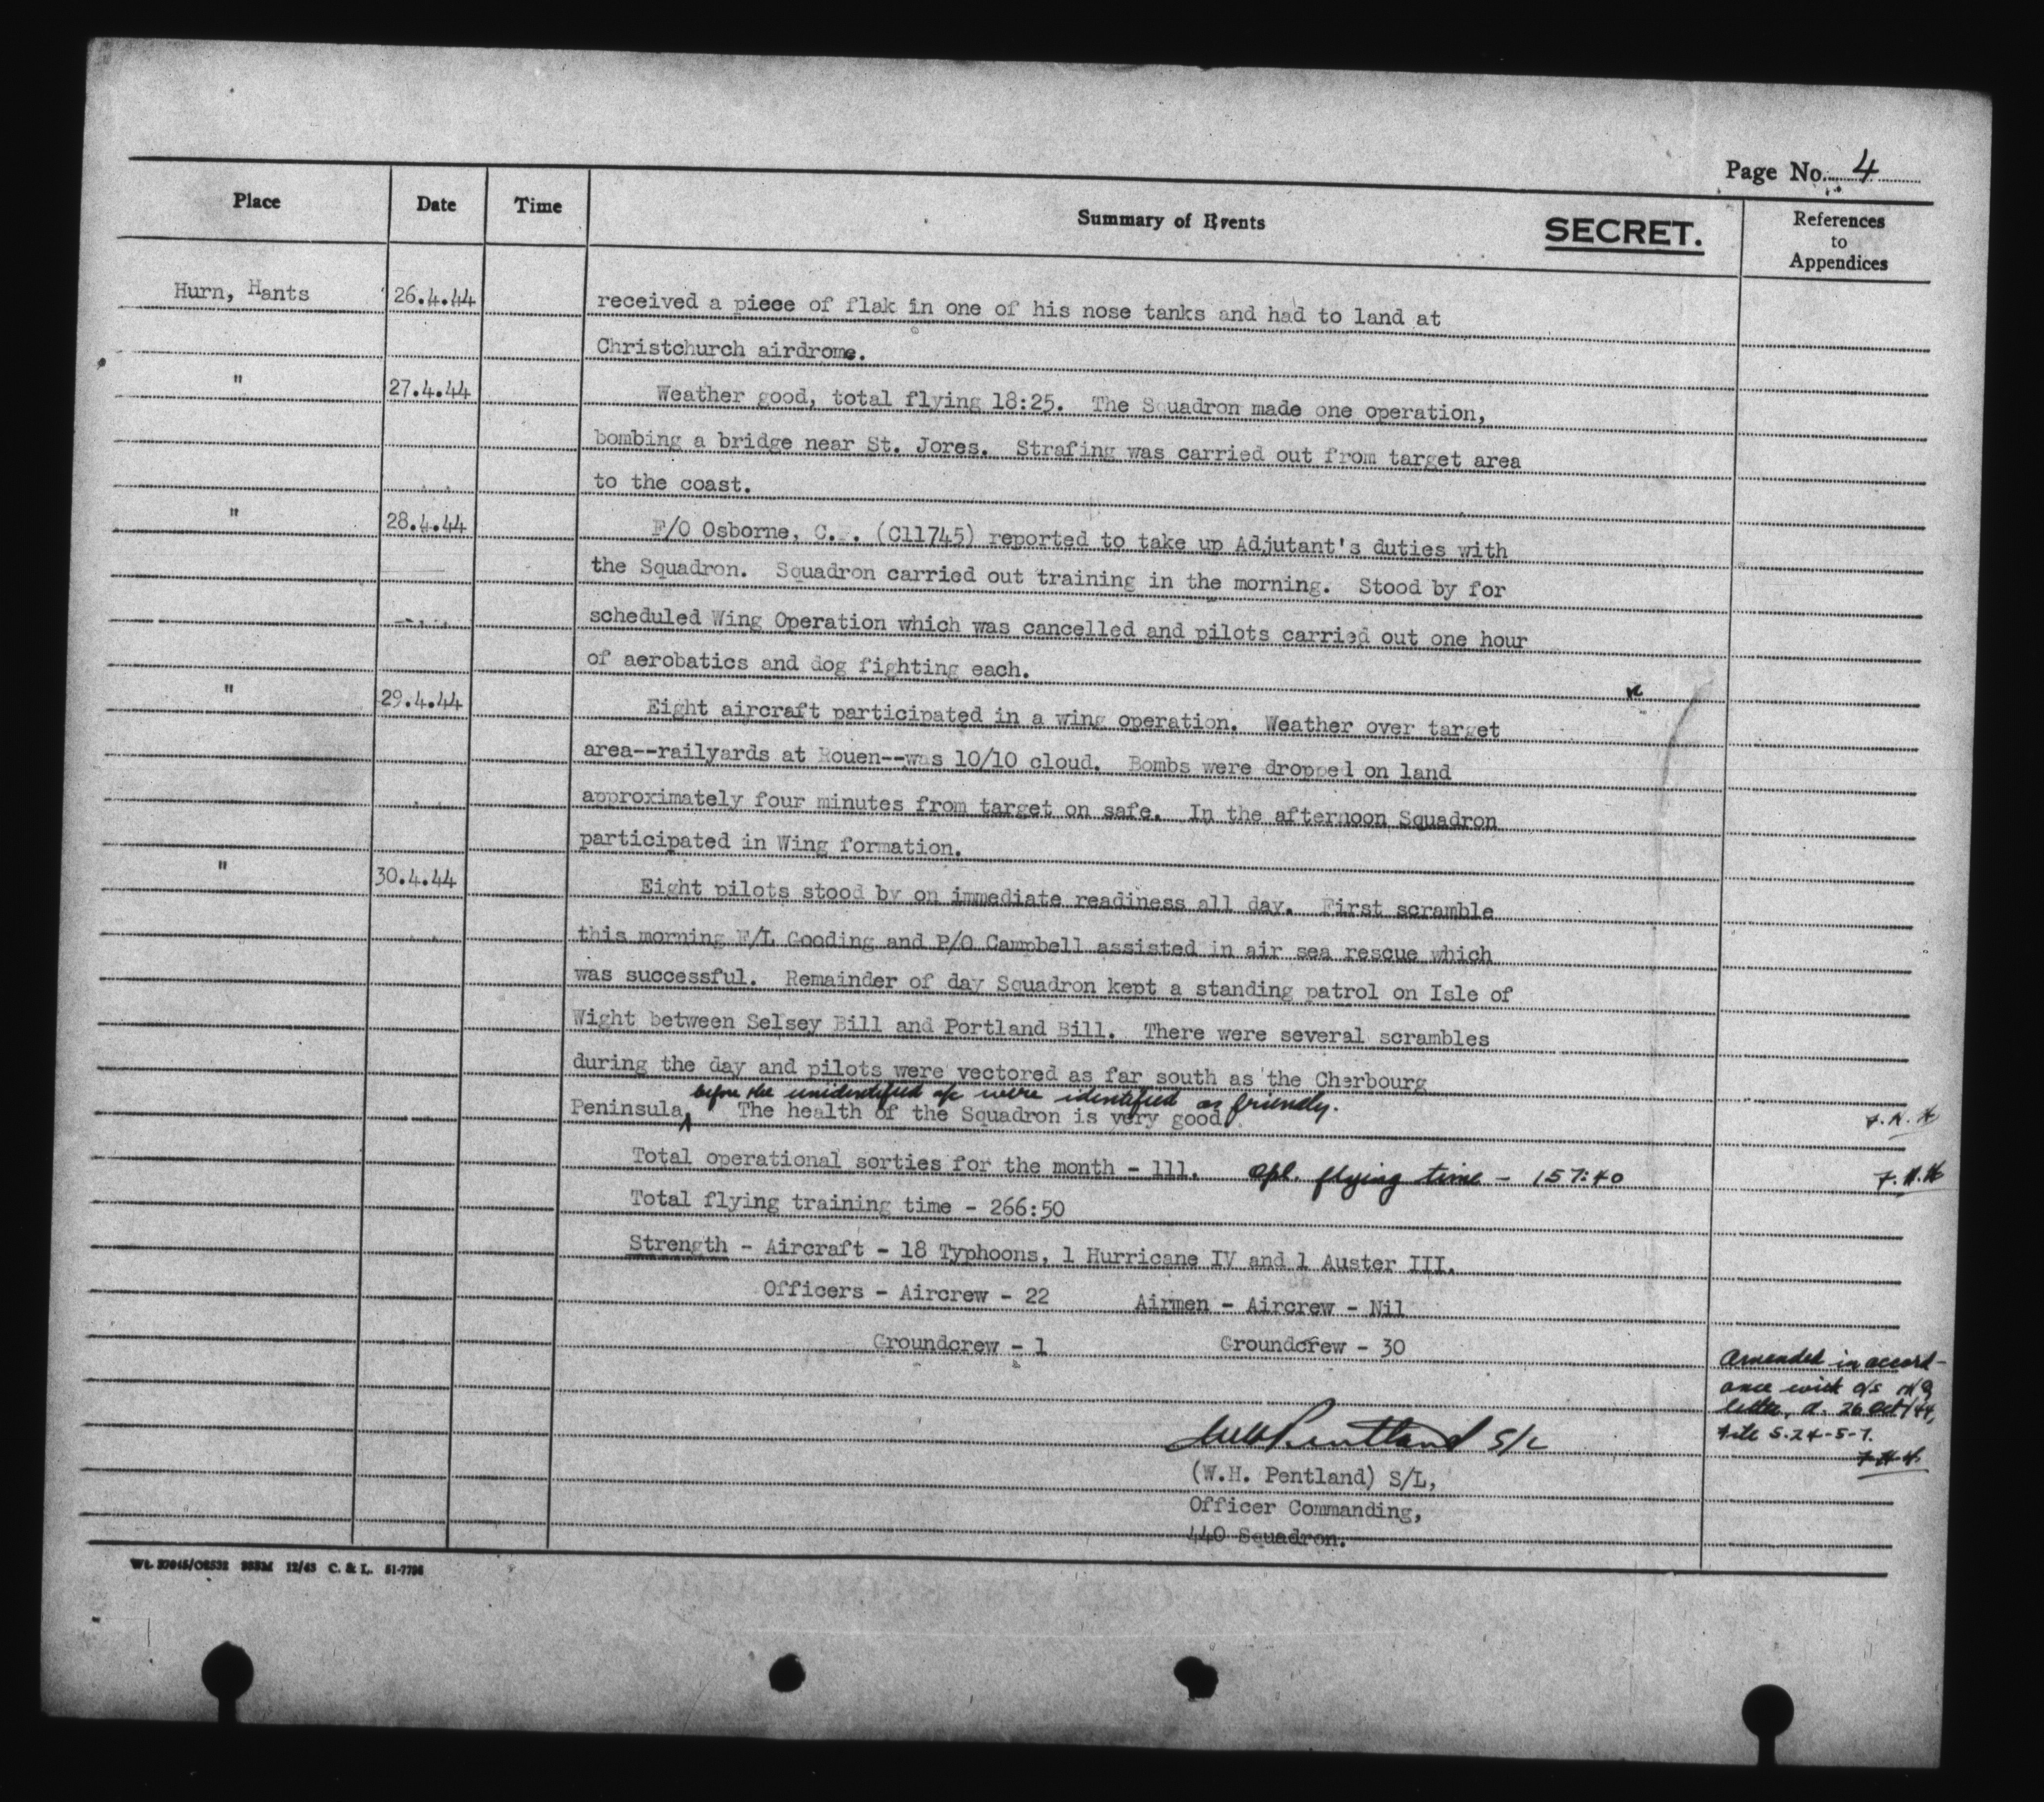 Page No. 4
Place Date Time Summary of Events SECRET. References to Appendices
Hurn, Hants 26.4.44 received a piece of flak in one of his nose tanks and had to land at
Christchurch airdrome.
" 27.4.44 Weather good, total flying 18:25. The Squadron made one operation,
bombing a bridge near St. Jores. Strafing was carried out from target area
to the coast.
" 28.4.44 F/O Osborne, C. (C11745) reported to take up Adjutant's duties with
the Squadron. Squadron carried out training in the morning. Stood by for
scheduled Wing Operation which was cancelled and pilots carried out one hour
of aerobatics and dog fighting each.
" 29.4.44 Eight aircraft participated in a wing operation. Weather over target
area--railyards at Rouen--was 10/10 cloud. Bombs were dropped on land
approximately four minutes from target on safe. In the afternoon Squadron
participated in Wing formation.
" 30.4.44 Eight pilots stood by on immediate readiness all day. First scramble
this morning F/L Gooding and P/O Campbell assisted in air sea rescue which
was successful. Remainder of day Squadron kept a standing patrol on Isle of
Wight between Selsey Bill and Portland Bill. There were several scrambles
during the day and pilots were vectored as far south as the Cherbourg
before the unidentified a/c were identified as friendly.
Peninsula. The health of the Squadron is very good. F.H.H
Total operational sorties for the month - 111. Opl. flying time - 157:40 F.H.H
Total flying training time - 266:50
Strength - Aircraft - 18 Typhoons, 1 Hurricane IV and 1 Auster III.
Officers - Aircrew - 22 Airmen - Aircrew - Nil
Groundcrew - 1 Groundcrew - 30
Amended in accord-
ance with o/s H/Q
letter, d. 26 Oct/44,
file S.24-5-7.
F.H.H.
WHPentland S/L
(W.H. Pentland) S/L,
Officer Commanding,
440 Squadron.
12/43 C. & L. 51-7796